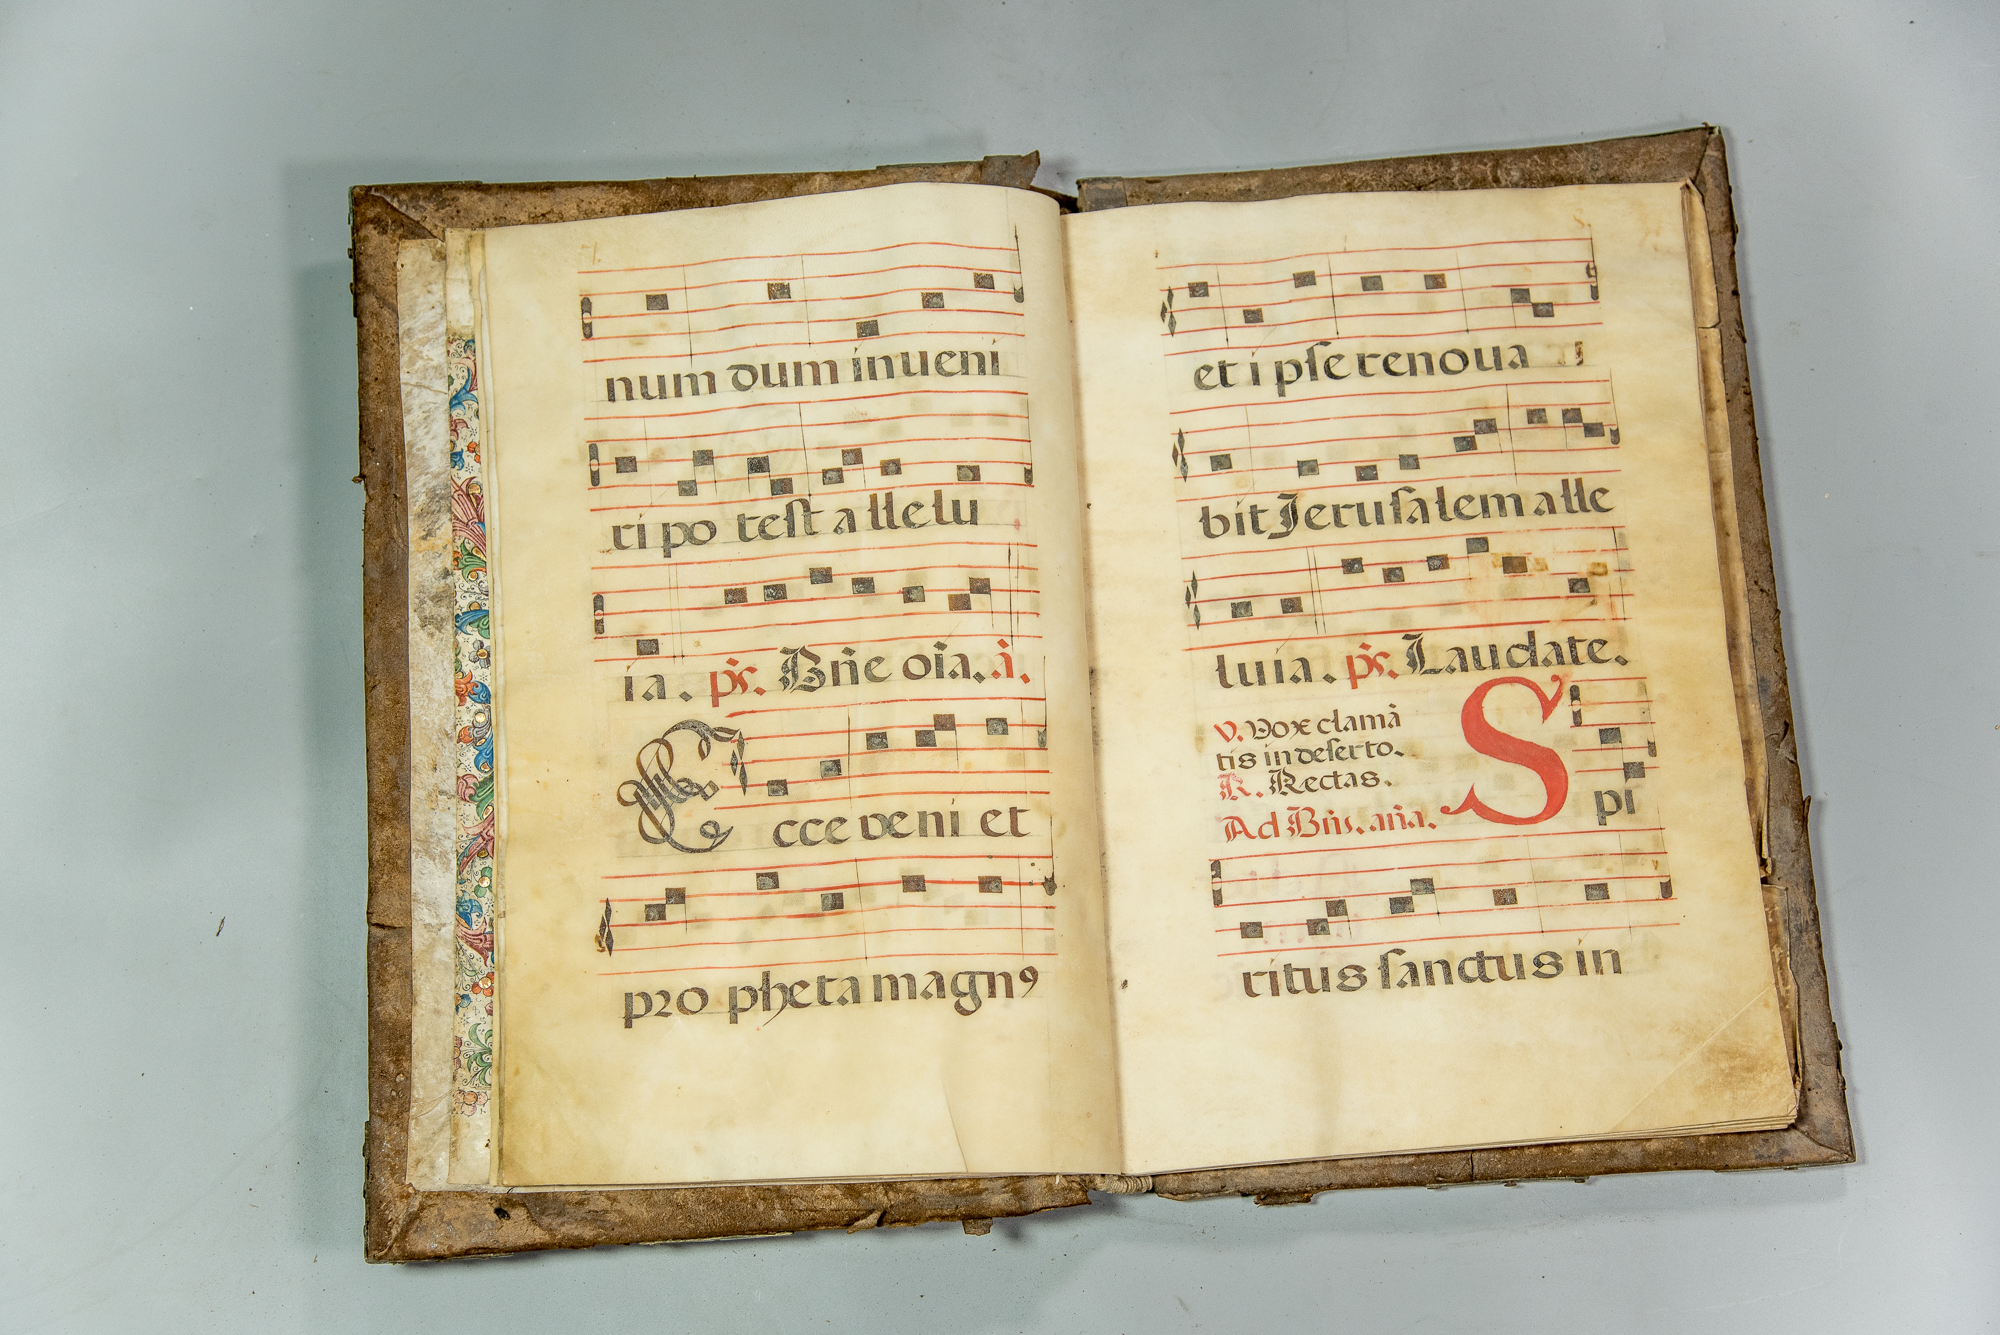 num dum inueni
ri po test a llelu
ia. ps. Bñe oĩa. ã.
Ecce veni et
pro pheta magnꝰ
et i pse renoua
bit Jerusalem alle
luia. ps. Laudate.
V. Vox clamã
tis in deserto.
R. Rectas.
Ad Bñs. aña.
Spi
ritus sanctus in